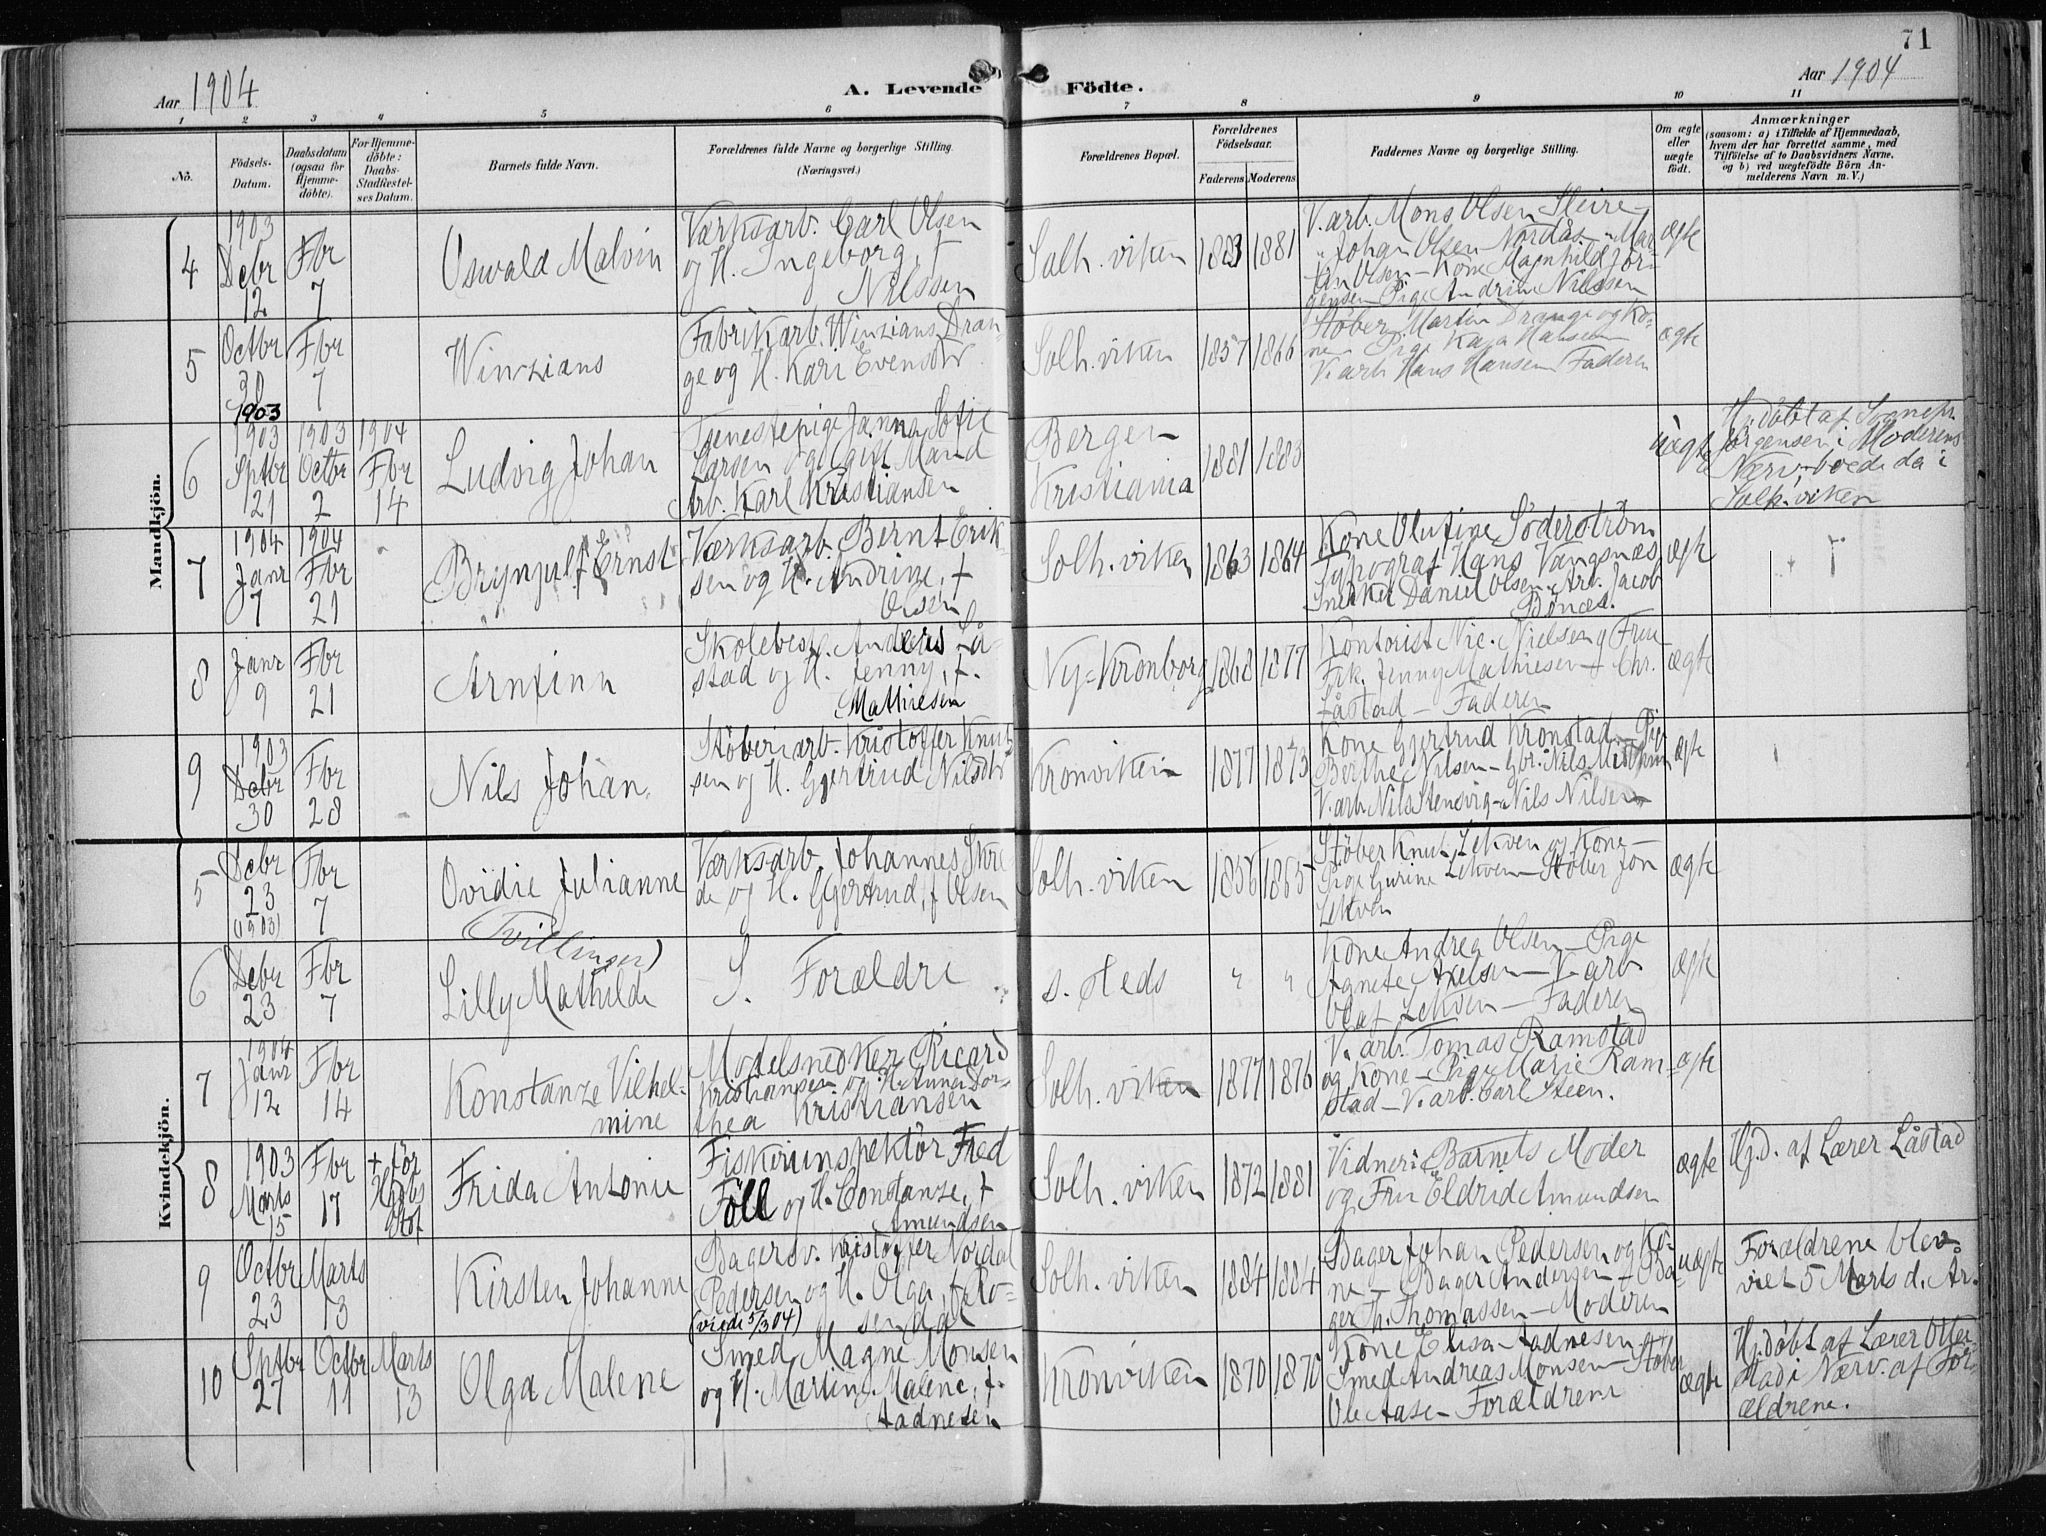 71
Aar 1904
A. Levende Födte.
Aar 1904
1 2 3 4 5 6 7 8 9 10 11
No.
Födsels-Datum.
Daabsdatum (ogsaa for Hjemme-döbte).
For Hjemme-döbte: Daabs-Stadfæstelses Datum.
Barnets fulde Navn.
Forældrenes fulde Navne og borgerlige Stilling. (Næringsvei.)
Forældrenes Bopæl.
Forældrenes Födselsaar.
Faderens Moderens
Faddernes Navne og borgerlige Stilling.
Om ægte eller uægte födt.
Anmærkninger
(saasom: a) i Tilfælde af Hjemmedaab,
hvem der har forrettet samme, med
Tilföielse af to Daabsvidners Navne,
og b) ved uægtefödte Börn An-
melderens Navn m. V.)
Mandkjön.
4
1903
Decbr
12
Fbr
7
Oswald Malvin
Værksarb. Carl Olsen
og H. Ingeborg, f.
Nilssen
Solh. viken
1883 1881
V.arb. Mons Olsen Steire-
" Johan Olsen Nordås - Mar-
tin Olsen - Kone Magnhild Jör-
gensen Pige Andrine Nilssen
ægte
5
Octbr
30
1903
Fbr
7
Winzians
Fabrikarb. Winzians Dran-
ge og H. Kari Evensdtr
Solh. viken
1857 1866
Støber Martin Drange og Ko-
ne - Pige Kaja Hansen
V.arb Hans Hansen Faderen
ægte
6
1903
Sptbr
21
1903
Octbr
2
1904
Fbr
14
Ludvig Johan
Tjenestepige Janna Sofie
Larsen og gift Mand
Arb. Karl Kristiansen
Bergen
Kristiania
1881 1883
uægte
Hj.döbt af Sognepr.
Jörgensen i Moderens
Nærv. boede da i
Solh.viken
7
1904
Janr
7
1904
Fbr
21
Brynjulf Ernst
Værksarb. Bernt Erik-
sen og H. Andrine, f.
Olsen
Solh. viken
1863 1864
Kone Olufine Söderström
Typograf Hans Vangsnæs
Snekker Daniel Olsen - Arb. Jacob
Bönæs.
ægte
8
Janr
9
Fbr
21
Arnfinn
Skolebest. Anders Lå-
stad og H. Jenny, f.
Mathiesen
Ny-Kronborg
1868 1877
Kontorist Nic. Nielsen og Frue
Frk. Jenny Mathiesen - Chr.
Låstad - Faderen
ægte
9
1903
Decbr
30
Fbr
28
Nils Johan
Støberiarb. Kristoffer Knut-
sen og H. Gjertrud Nilsdtr
Kronviken
1877 1873
Kone Gjertrud Kronstad - Pige
Berthe Nilsen - Gbr. Nils
V.arb. Nils Stensvig - Nils Nilsen
ægte
Kvindekjön.
5
Decbr
23
(1903)
Fbr
7
Ovidie Julianne
(Tvillinger)
Værksarb. Johannes Skre-
de og H. Gjertrud, f. Olsen
Solh. viken
1856 1865
Støber Knut Lekven og Kone -
Pige Gurine Lekven - Støber Jon
Lekven
ægte
6
Decbr
23
Fbr
7
Lilly Mathilde
S. Forældre
s. steds
" "
Kone Andrea Olsen - Pige
Agnete Axelsen - V.arb
Olaf Lekven - Faderen
ægte
7
1904
Janr
12
Fbr
14
Konstanze Vilhel-
mine
Modelsnedker Ricard
Kristiansen og H. Anna Dor-
thea Kristiansen
Solh. viken
1877 1876
V. arb. Tomas Ramstad
og Kone - Pige Marie Ram-
stad - V.arb. Carl Steen.
ægte
8
1903
Marts
15
Fbr
17
+ för
Frida Antonie
Fiskeriinspektör Fred
Föll og H. Constanze, f.
Amundsen
Solh. viken
1872 1881
Vidner: Barnets Moder
og Fru Eldrid Amundsen
ægte
Hj.d. af Lærer Låstad
9
Octbr
23
Marts
13
Kirsten Johanne
Bagersv. Kristoffer Nordal
Pedersen og H. Olga, f. Ro-
(viede 5/3 04) sendal
Solh. viken
1884 1884
Bager Johan Pedersen og Ko-
ne - Bager Andersen - Ba-
ger Th. Thomassen - Moderen
uægte
Forældrene blev
viet 5 Marts d. Ar.
10
Sptbr
27
Octbr
11
Marts
13
Olga Malene
Smed Magne Monsen
og H. Martine Malene, f.
Aadnesen
Kronviken
1870 1870
Kone Elisa Aadnesen
Smed Andreas Monsen - Støber
Ole Aase - Forældrene
ægte
Hj.döbt af Lærer Otter-
stad i Nærv. af For-
ældrene.